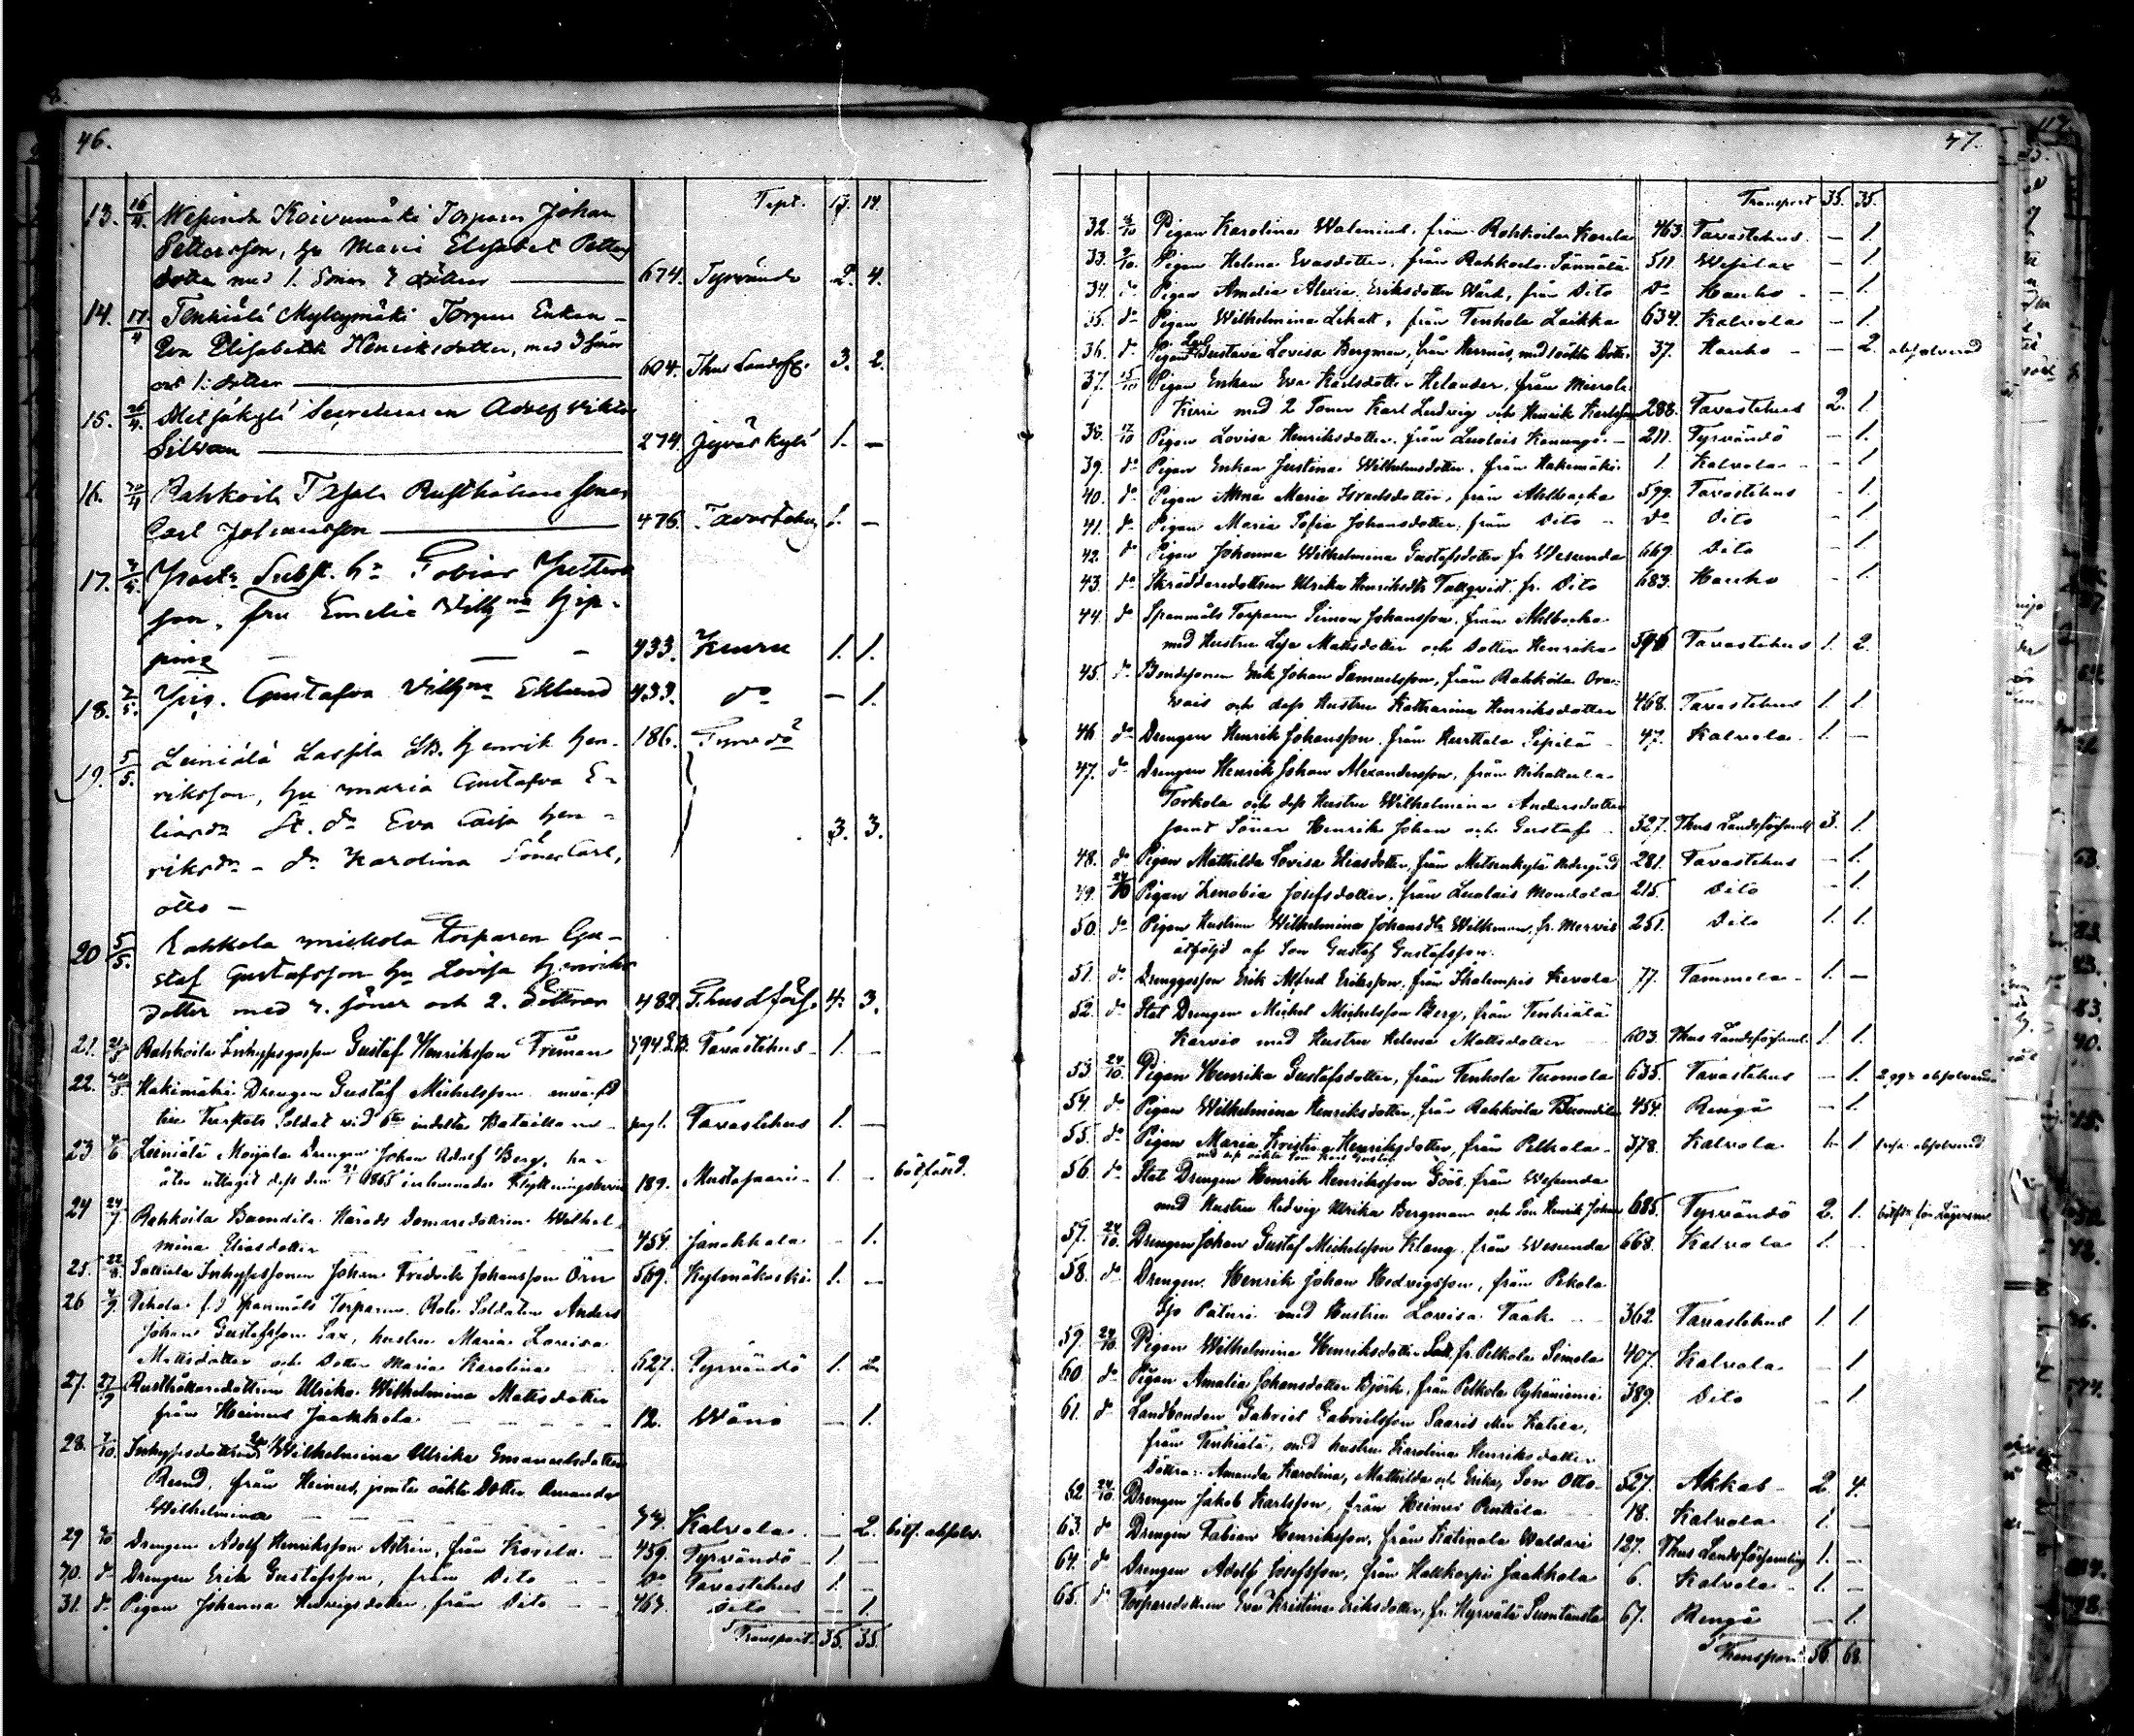 46.
Tspt. 17. 14.
13. 16/4. Wesunda Koivumäki Torparen Johan
Pettersson, hu Maria Elisabet Petters
dotter med 1. Son o 3 döttrar 674. Tyrvändö 2. 4.
14. 17/4 Tenhiälä Myllymäki Torpare Enkan
Eva Elisabeth Henriksdotter, med 3 söner
och 1. dotter 604. Thus Landsfg. 3. 2.
15. 26/4. Adolf Viktor
Silvan 274 Jyväskylä 1. —
16. 30/4 Rahkoila Rusthållare sonen
Carl Johansson 476. Tavastehus 1. —
17. Subst. Hr Tobias
son, fru Emelia Vilhna
ping 433. Keuru 1. 1.
18. 2/5. Pig. Gustafva Vilhna Eklund 433. do — 1.
19. 5/5. Leiniälä Lassila LB. Henrik Hen-
riksson, hu Maria Gustafva E-
liasdr dr Eva Caisa Hen-
riksdr - dr Karolina Söner Carl,
Otto — 186. Tyrvdö 3. 3.
20 5/5. Rahkola Torparen Gu-
staf Gustafsson hu Lovisa Henriks
dotter med 3. söner och 2. döttrar 482. T.hus Lförs. 4. 3.
21. Rahkoila Inhysesgossen Gustaf Henriksson Friman 494 Tavastehus 1. —
22. Hakimäki Drengen Gustaf Michelsson
Soldat vid 6te indelta Tavastehus 1. —
23 Leiniälä Moijala Drengen Johan Adolf Berg, har
åter uttagit dess den 21/1 1865 inlemnade flyttningsbevis 189. Mustasaari 1. — bötfäld.
24 24/7 Rahkoila Buendila Härads Domaredottren Wilhel-
mina Eliasdotter 454 Janakkala — 1.
25. 22/8 Inhysessonen Johan Fredrik Johansson Örn 569. Kylmäkoski 1. —
26 Pekola f.d. Spanmåls Torparen Rote Soldaten Anders
Johan Gustafsson Sax, hustru Maria Lovisa
Mattsdotter och Dotter Maria Karolina 627. Tyrvändö 1. 2
27. 27/9 Rusthållaredottren Ulrika Wilhelmina Mattsdotter
från Heinus Jaakkola 12. Wånå — 1.
28. 2/10. Inhysesdottren Wilhelmina Ulrika Emanuelsdotter
Rund, från Heinus, jemte oäkta Dotter Amanda
Wilhelmina 44. Kalvola — 2. bötf. absolv.
29 Drengen Adolf Henriksson Astrén, från Karela 459. Tyrvändö 1. —
30. do Drengen Erik Gustafsson, från Dito Do Tavastehus 1. —
31. do Pigan Johanna Hedvigsdotter, från Dito 464. Dito — 1.
Transport 35. 35.
47.
Transport 35. 35.
32. Pigan Karolina Walenius, från Rahkoila Karela 463. Tavastehus — 1.
33. 9/10. Pigan Helena Evasdotter, från Rahkoila 511 Wesilax — 1.
34. do Pigan Amelia Alexia Eriksdotter Wård, från Dito Do Hauho — 1.
35. do Pigan Wilhelmina Lekatt, från Tenhola Laikka 634. Kalvola — 1.
36. do Pigan Gustava Lovisa Bergman, från Hernäs, med 1 oäkta Dotter 37. Hauho — 2. absolverad
37. 15/10 Pigan Enkan Eva Karlsdotter Helander, från
med 2 Söner Karl Ludvig och Henrik Karlsson 288. Tavastehus 2. 1.
38. 17/10 Pigan Lovisa Henriksdotter, från Luolais 211. Tyrvändö — 1.
39. do Pigan Enkan Justina Wilhelmsdotter, från Hakimäki 1. Kalvola — 1.
40. do Pigan Anna Maria Israelsdotter, från Ahlbacka 599. Tavastehus — 1.
41. do Pigan Maria Sofia Johansdotter, från Dito do Dito — 1.
42. do Pigan Johanna Wilhelmina Gustafsdotter fr Wesunda 669. Dito — 1.
43. do Skräddaredottren Ulrika Henriksdtr Tallqvist, fr. Dito 683. Hauho — 1.
44. do Spanmåls Torparen Simon Johansson, från Ahlbacka
med Hustru Lisa Mattsdotter och Dotter Henrika 596 Tavastehus 1. 2.
45. do Bondesonen Erik Johan Samuelsson, från Rahkoila Ora-
vais och dess Hustru Katharina Henriksdotter 468. Tavastehus 1. 1.
46 do Drengen Henrik Johansson, från Herttala Sipilä 47. Kalvola 1. —
47. do Drengen Henrik Johan Alexandersson, från Nihattula
Torkola och dess Hustru Wilhelmina Andersdotter
samt Söner Henrik Johan och Gustaf 327. Thus Landsförsaml 3. 1.
48. do Pigan Mathilda Lovisa Eliasdotter, från Metsänkylä Nedergård 281. Tavastehus — 1.
49. 24/10 Pigan Zenobia Josefsdotter, från Luolais Mondola 215. Dito — 1.
50. do Pigan Hustrun Wilhelmina Johansdtr Willman, fr. Mervis 251. Dito 1. 1.
åtföljd af Son Gustaf Gustafsson.
51. do Drenggossen Erik Alfred Eriksson, från Kevola 77. Tammela 1. —
52. do Stat Drengen Michel Michelsson Berg, från Tenhiälä
Karvia med Hustru Helena Mattsdotter 603. Thus Landsförsaml. 1. 1.
53 24/10. Pigan Henrika Gustafsdotter, från Tenhola Tuomola 635. Tavastehus — 1. 2 ggr absolverad
54. do Pigan Wilhelmina Henriksdotter, från Rahkoila Buendila 454. Rengå — 1.
55. do Pigan Maria Kristina Henriksdotter, från Pelkola 378. Kalvola 1. 1 absolverad
med sin oäkta Son Karl Gustaf
56. do Stat Drengen Henrik Henriksson Göös från Wesunda
med Hustru Hedvig Ulrika Bergman och Son Henrik Johan 685. Tyrvändö 2. 1. bötf. för Lägersml
57. 24/10. Drengen Johan Gustaf Michelsson Klang, från Wesunda 668. Kalvola 1. —
58. do Drengen Henrik Johan Hedvigsson, från Pekola
med Hustru Lovisa Taak 362. Tavastehus 1. 1
59. 24/10. Pigan Wilhelmina Henriksdotter fr. Pelkola Simola 407. Kalvola — 1
60. do Pigan Amalia Johansdotter Björk, från Pelkola Pyhäniemi 389. Dito — 1.
61. do Landbonden Gabriel Gabrielsson Saaris eller Katila,
från Tenhiälä, med hustru Karolina Henriksdotter
Döttrar Amanda Karolina, Mathilda och Erika, Son Otto 527. Akkas 2. 4.
62. 24/10. Drengen Jakob Karlsson, från Heinus Penttilä 18. Kalvola 1. —
63. do Drengen Fabian Henriksson, från Katinala Waldari 127. Thus Landsförsamling 1. —
64. do Drengen Adolf Josefsson, från Hattkorpi Jaakkola 6. Kalvola 1. —
65. do Torparedottren Eva Kristina Eriksdotter, fr. Hyrvälä Suontausta 67. Rengå — 1.
Transport 56. 68.